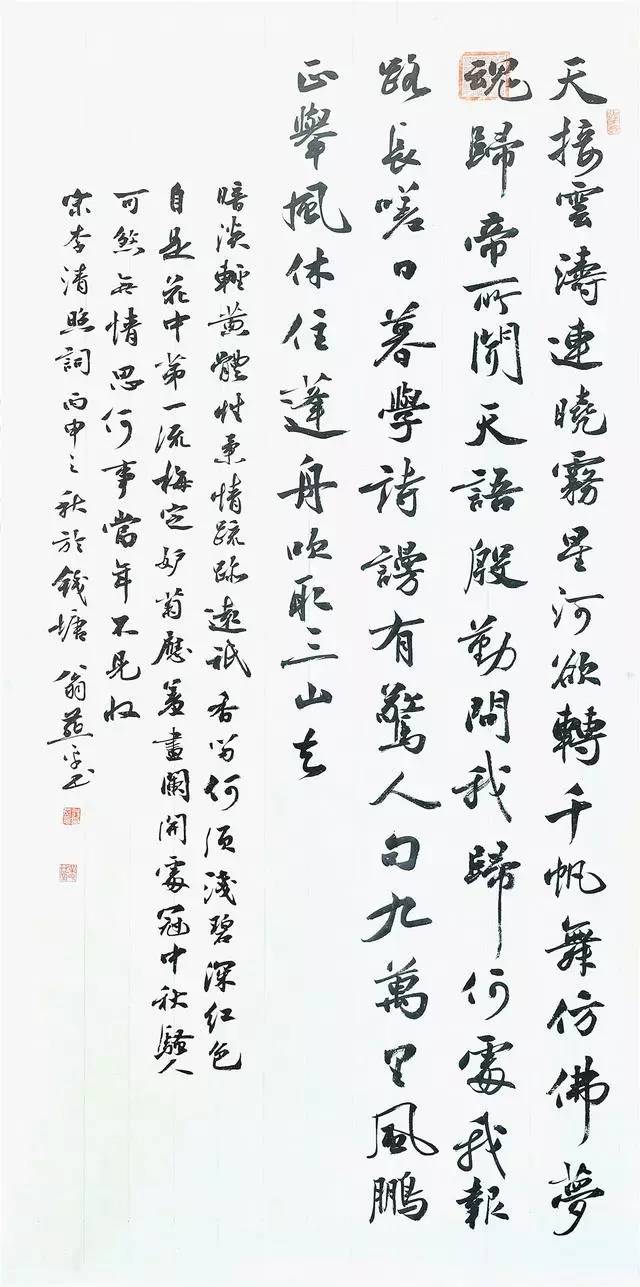 天接雲濤連曉霧星河欲轉千帆舞仿佛夢
魂歸帝所聞天語殷勤問我歸何處我報
路長嗟日暮學詩謾有驚人句九萬里風鵬
正舉風休住蓬舟吹取三山去
暗淡輕黃體性柔情疏跡遠衹香留何須淺碧深紅色
自是花中第一流梅定妒菊應羞畫闌開處冠中秋騷人
可煞無情思何事當年不見收
宋李清照詞丙申之秋於錢塘 翁燕